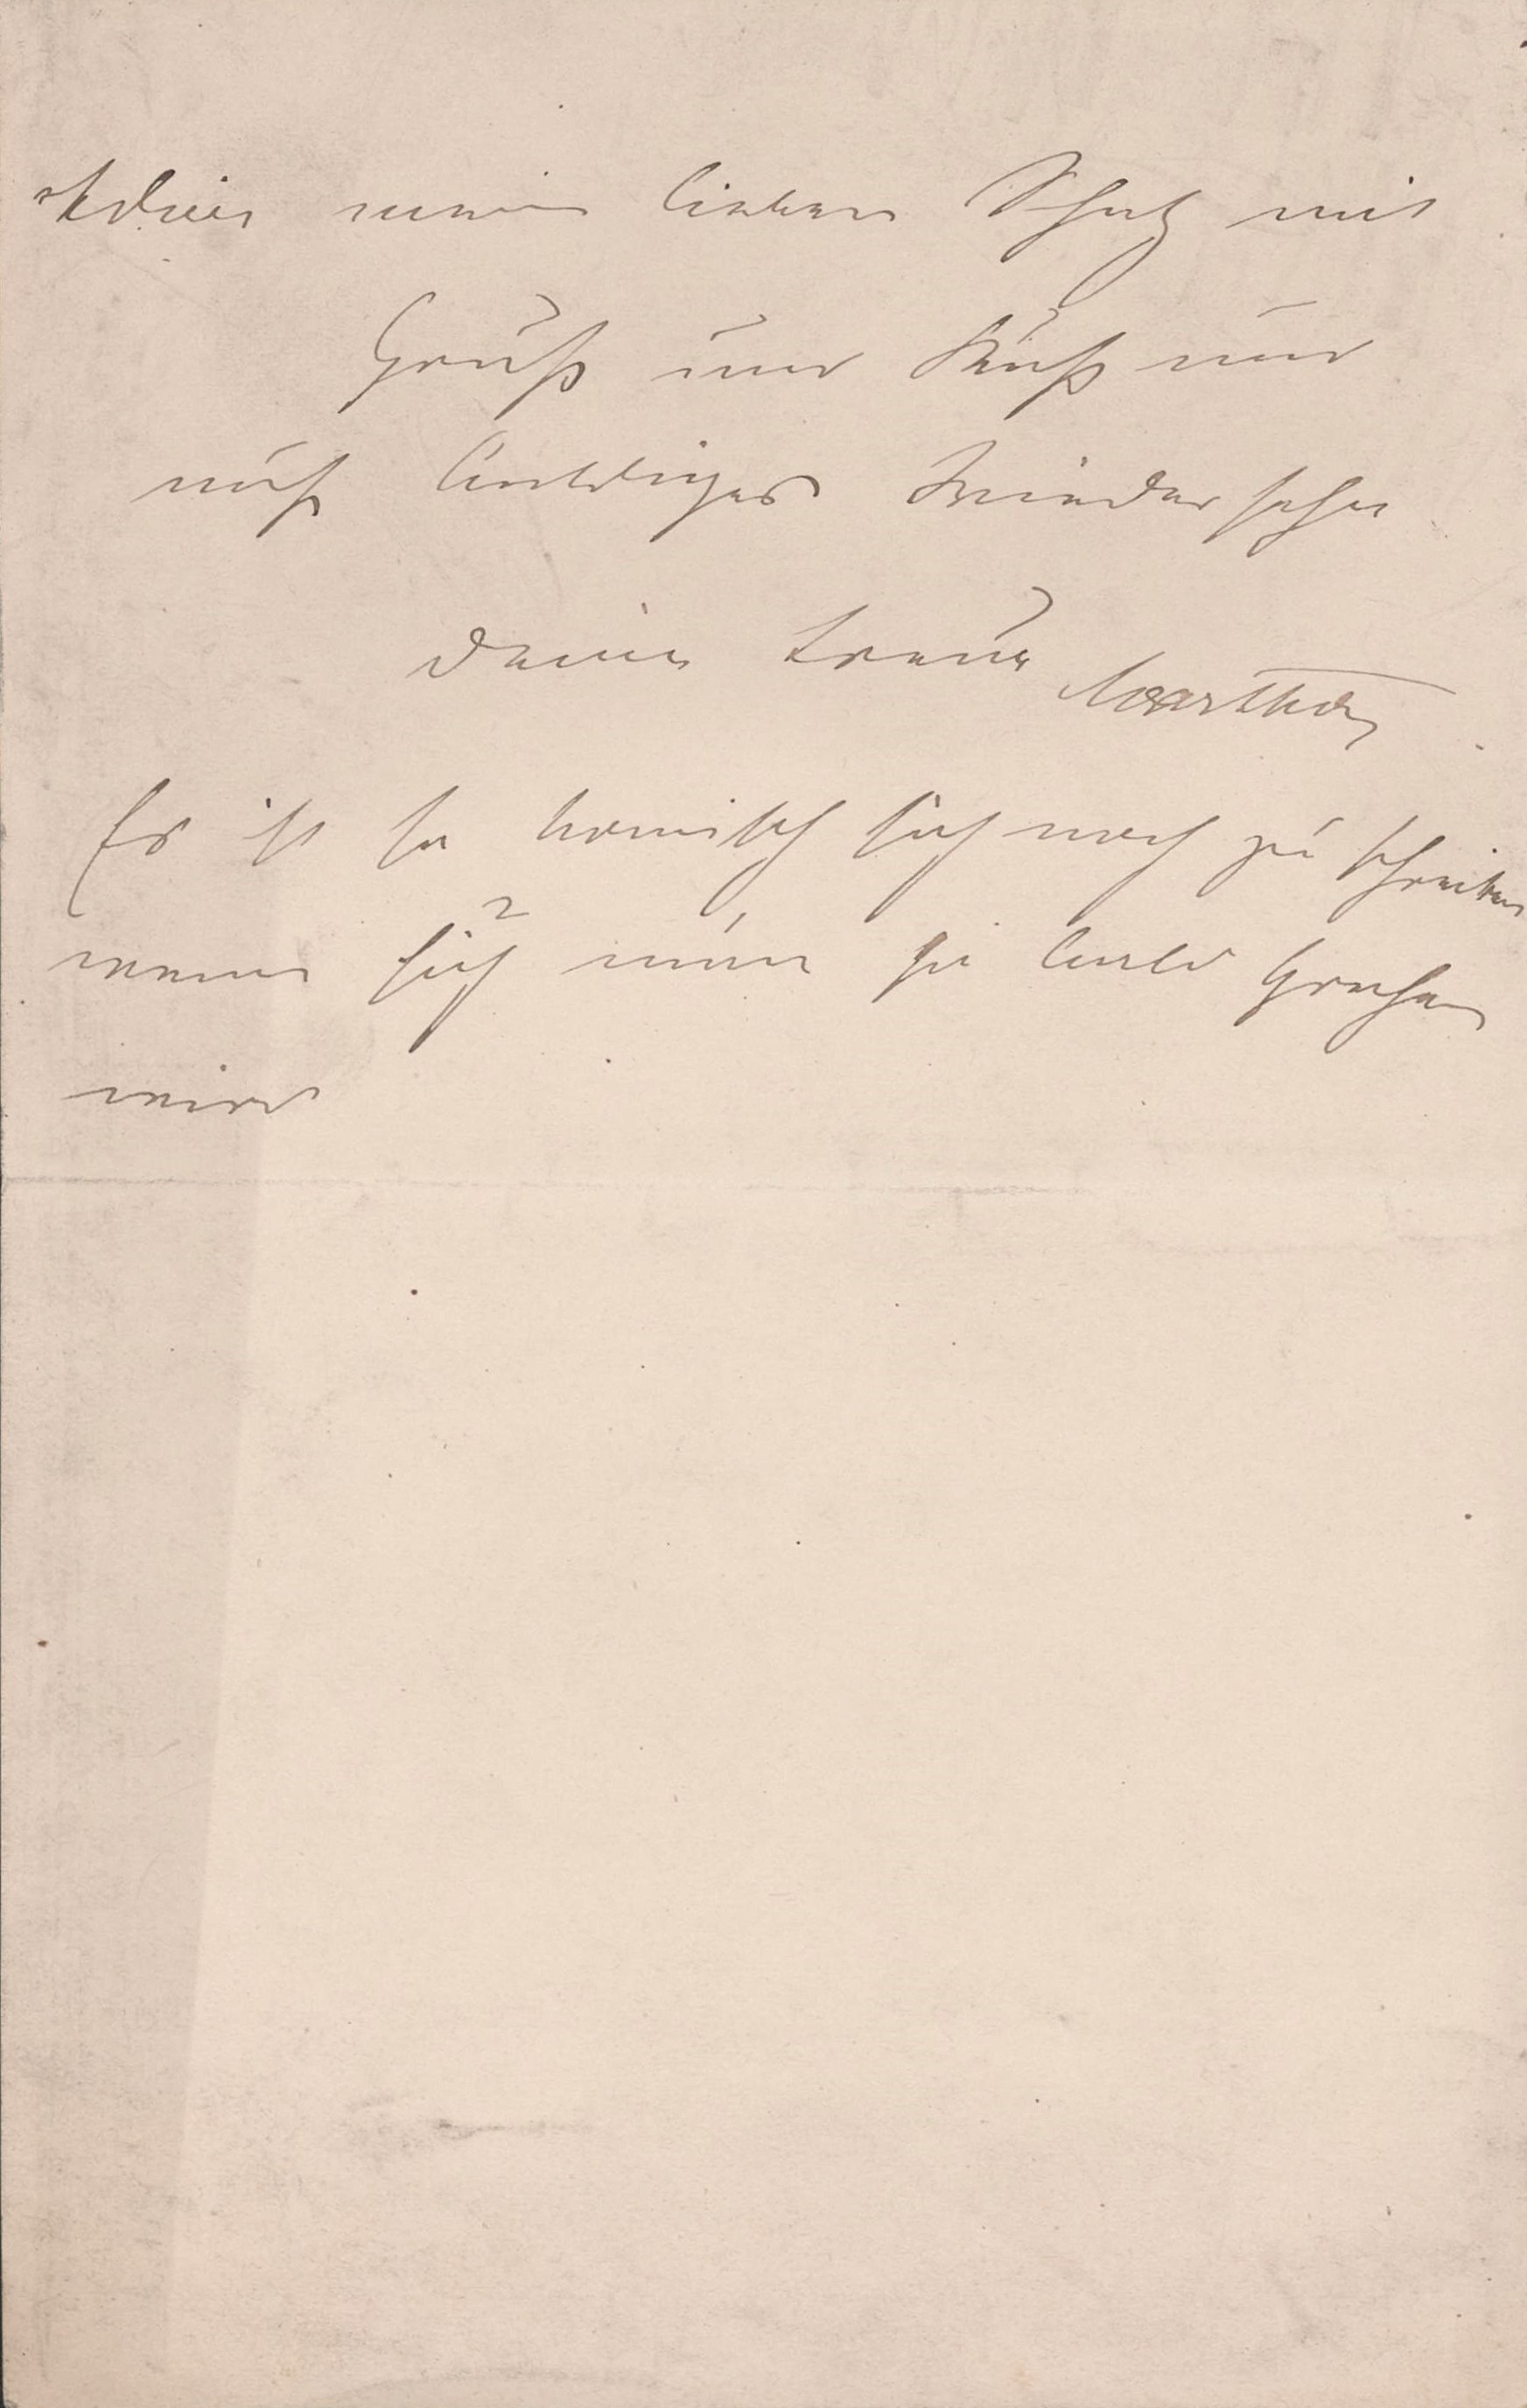 Adieu mein lieber Schatz mit
Gruß und Kuß und
auf baldiges Wiedersehen
Deine treue Martha
Es ist so komisch sich noch zu schreiben
wenn sich man so bald sehen
wird